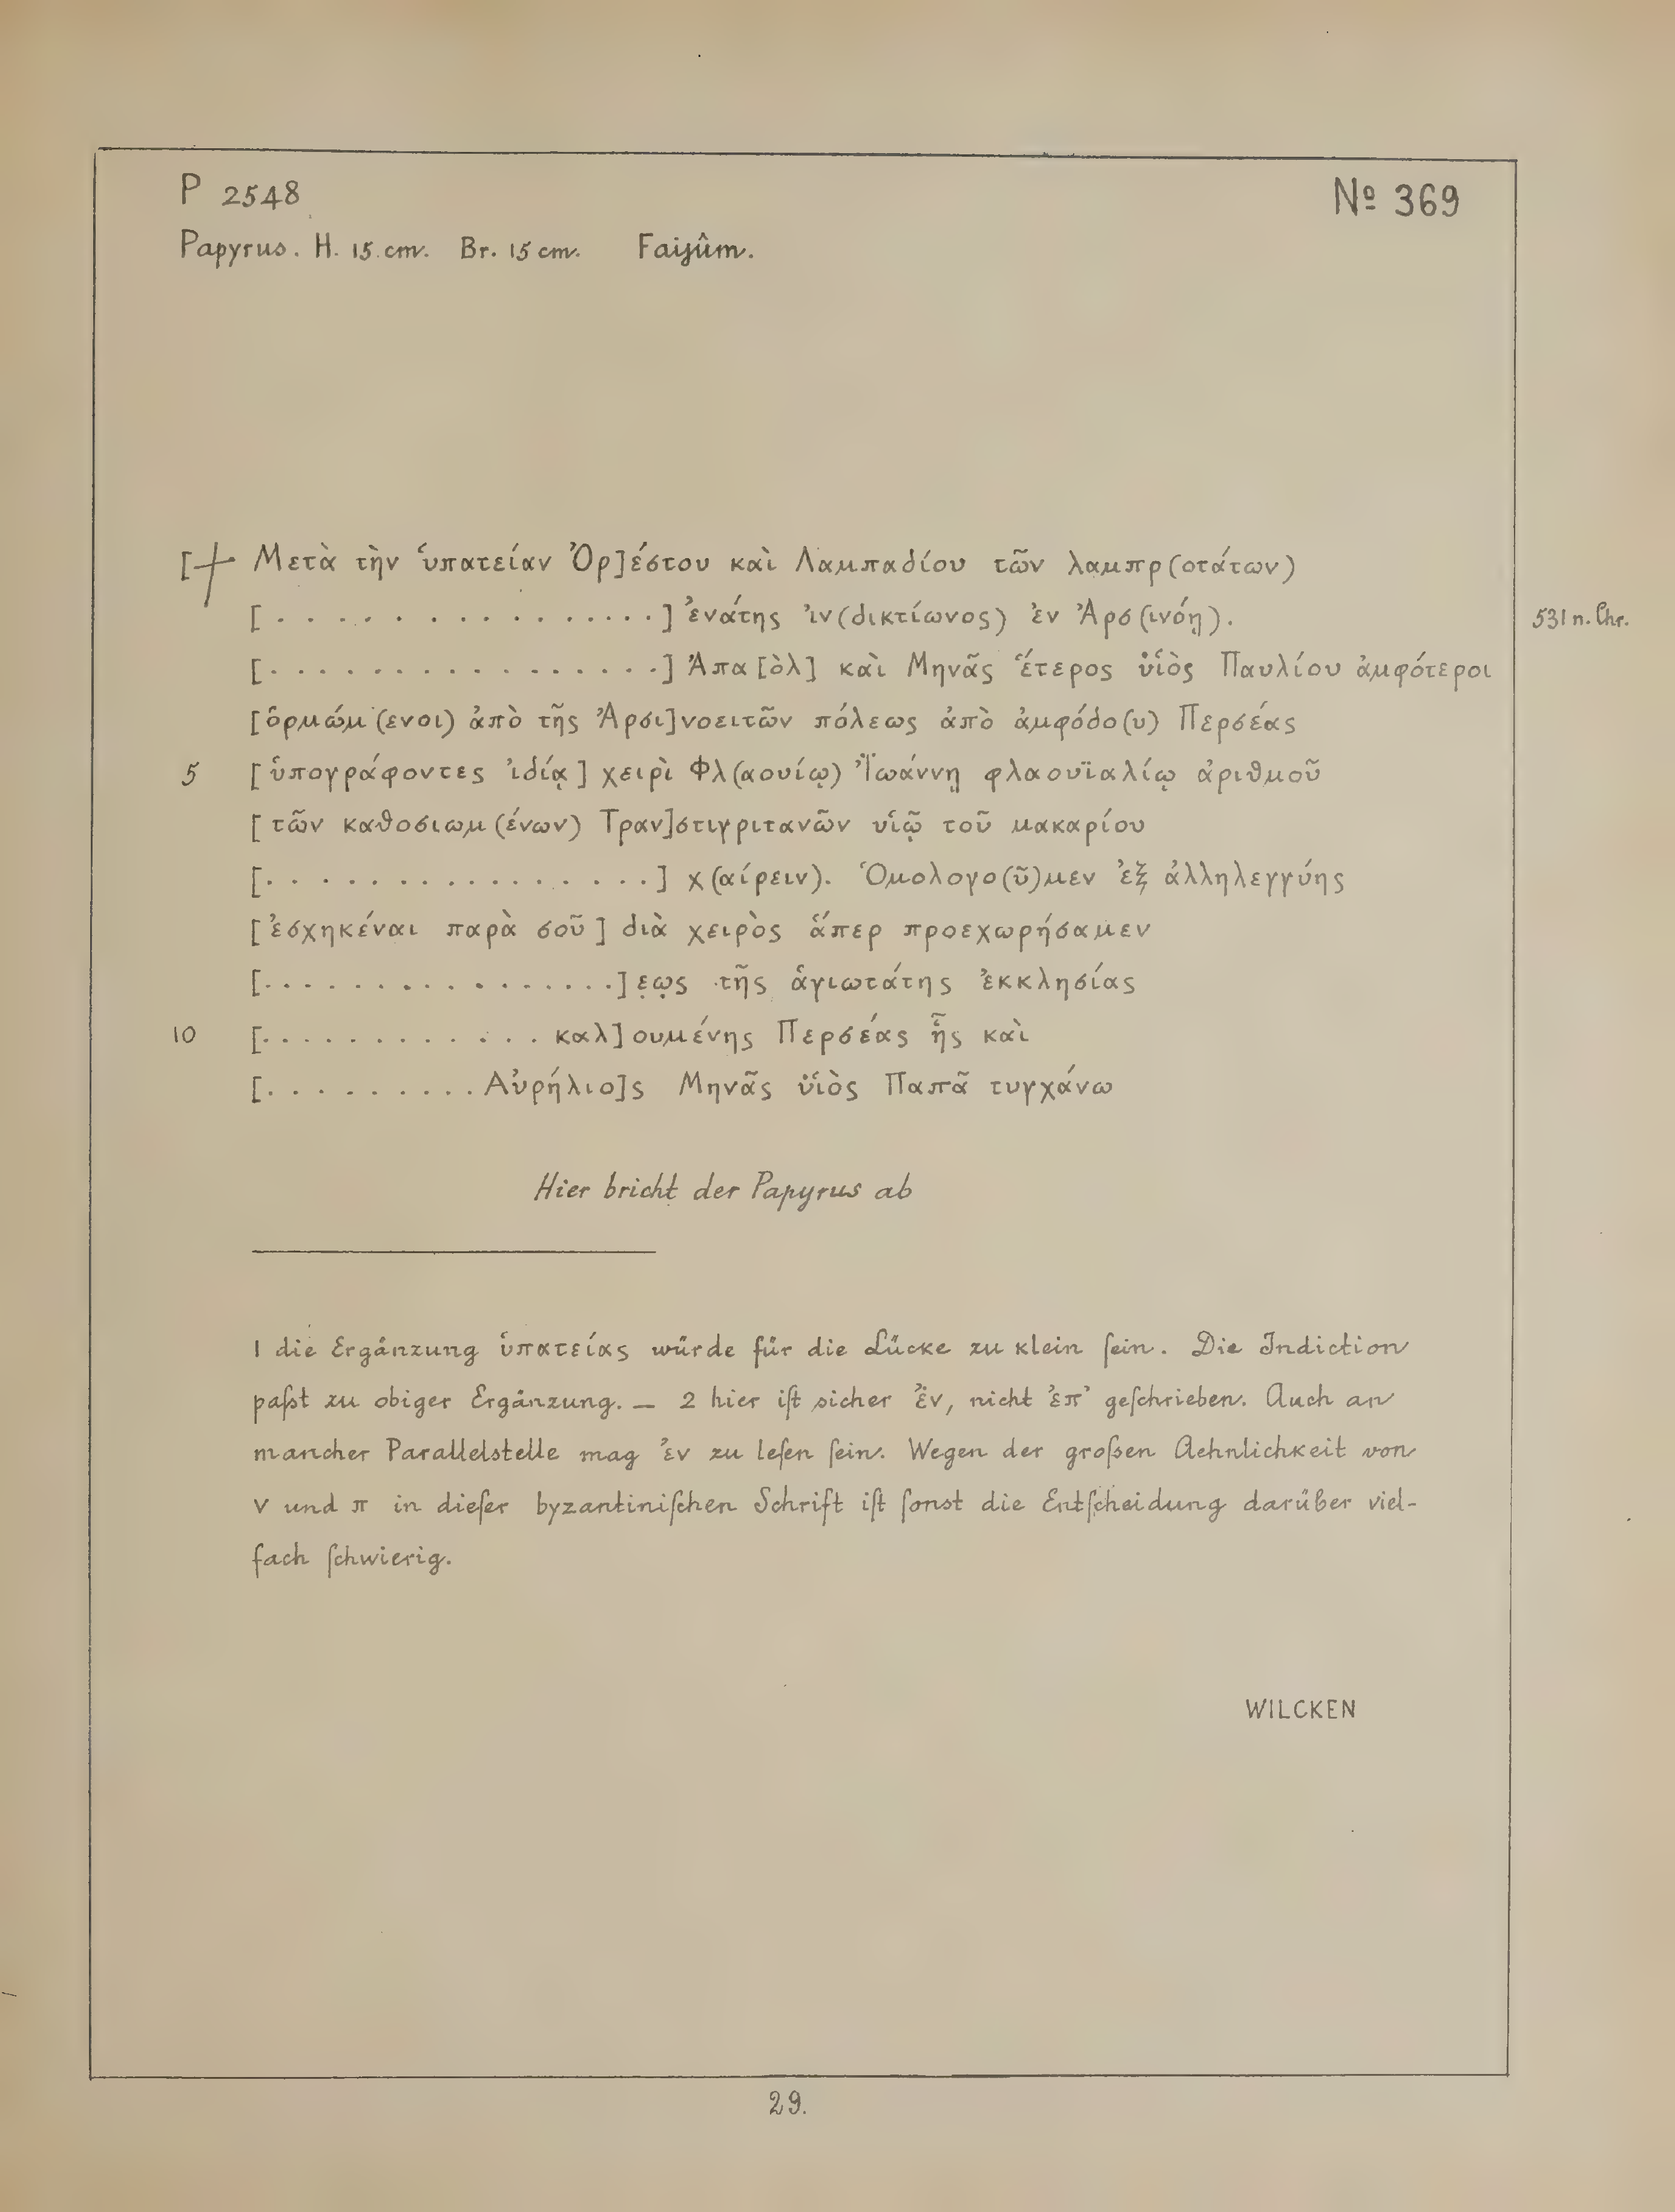 P 2548 Nº 369
Papyrus. H. 15 cm. Br. 15 cm. Faijûm.
[⳨ Μετὰ τὴν ὑπατείαν Ὀρ]έστου καὶ Λαμπαδίου τῶν λαμπρ(οτάτων)
[. . . . . . . . . . . . . . . . .] ἐνάτης ἰν(δικτίωνος) ἐν Ἀρσ(ινόῃ). 531 n. Chr.
[. . . . . . . . . . . . . . . . .] Ἀπα[ὸλ] καὶ Μηνᾶς ἕτερος ϋἱὸς Παυλίου ἀμφότεροι
[ὁρμώμ(ενοι) ἀπὸ τῆς Ἀρσι]νοειτῶν πόλεως ἀπὸ ἀμφόδο(υ) Περσέας
5 [ὑπογράφοντες ἰδίᾳ] χειρὶ Φλ(αουίῳ) Ἰ̈ωάννῃ φλαουϊαλίῳ ἀριθμοῦ
[τῶν καθοσιωμ(ένων) Τραν]στιγριτανῶν υἱῷ τοῦ μακαρίου
[. . . . . . . . . . . . . . . . .] χ(αίρειν). Ὁμολογο(ῦ)μεν ἐξ ἀλληλεγγύης
[ἐσχηκέναι παρὰ σοῦ] διὰ χειρὸς ἅπερ προεχωρήσαμεν
[. . . . . . . . . . . . . . . .]ε̣ω̣ς τῆς ἁγιωτάτης ἐκκλησίας
10 [. . . . . . . . . . . . . καλ]ουμένης Περσέας ἧς καὶ
[. . . . . . . . . . Αὐρήλιο]ς Μηνᾶς ϋἱὸς Παπᾶ τυγχάνω
Hier bricht der Papyrus ab
1 die Ergänzung ὑπατείας würde für die Lücke zu klein ſein. Die Indiction
paßt zu obiger Ergänzung. — 2 hier iſt sicher ἐν, nicht ἐπ' geſchrieben. Auch an
mancher Parallelstelle mag ἐν zu leſen ſein. Wegen der großen Aehnlichkeit von
ν und π in dieſer byzantiniſchen Schrift iſt ſonst die Entſcheidung darüber viel-
fach ſchwierig.
WILCKEN
29.